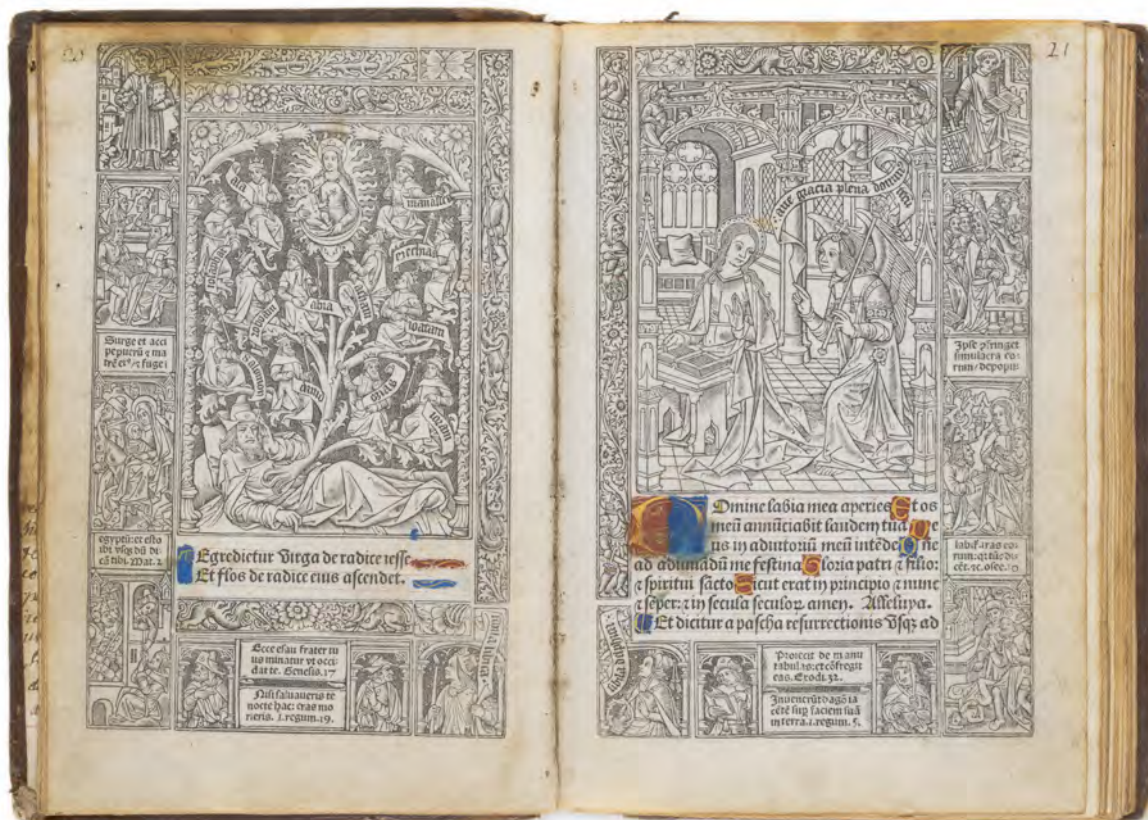 21
asa
manasses
ezechias
ioathan
abia
salomon
dauid
ave gracia plena domin tecū
Surge et acci
pe puerū ⁊ ma
trē eiꝰ ⁊ fuge i
egyptū: et esto
ibi vsqꝫ dū di
cā tibi. Mat. 2
Egredietur Virga de radice iesse
Et flos de radice eius ascendet.
Ecce esau frater tu
us minatur vt occi
dat te. Genesis. 27
Nisi saluaueris te
nocte hac: cras mo
rieris. 1. regum. 19.
Ipse cōfringet
simulacra eo
rum: depopu
labit̉ aras eo
rum: 
cēt. ⁊c. osee. 10
DOmine labia mea aperies Et os
meū annūciabit laudem tuā De
us in adiutoriū meū intēde Dñe
ad adiuuādū me festina Gloria patri ⁊ filio:
⁊ spiritui sācto Sicut erat in principio ⁊ nunc
⁊ sēper: ⁊ in secula seculoꝝ amen. Alleluya.
Et dicitur a pascha resurrectionis Vsqꝫ ad
Proiecit de manu
tabulas: et cōfregit
eas. Exodi. 32.
Inuenerūt dagō ia
cētē suꝑ faciem suā
in terra. 1. regum. 5.